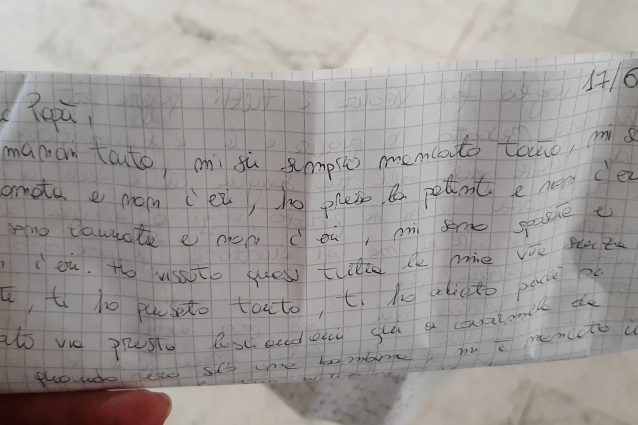 17/6
Papà,
manchi tanto, mi sei sempre mancato tanto, mi
e non c'eri, ho preso la patente e non c'er
sono laureata e non c'eri, mi sono sposata e
c'eri. Ho vissuto quasi tutta la mia vita senza
te, ti ho pensato tanto, ti ho odiato
via presto lasciandomi
quando ero solo una bambina, mi è mancato